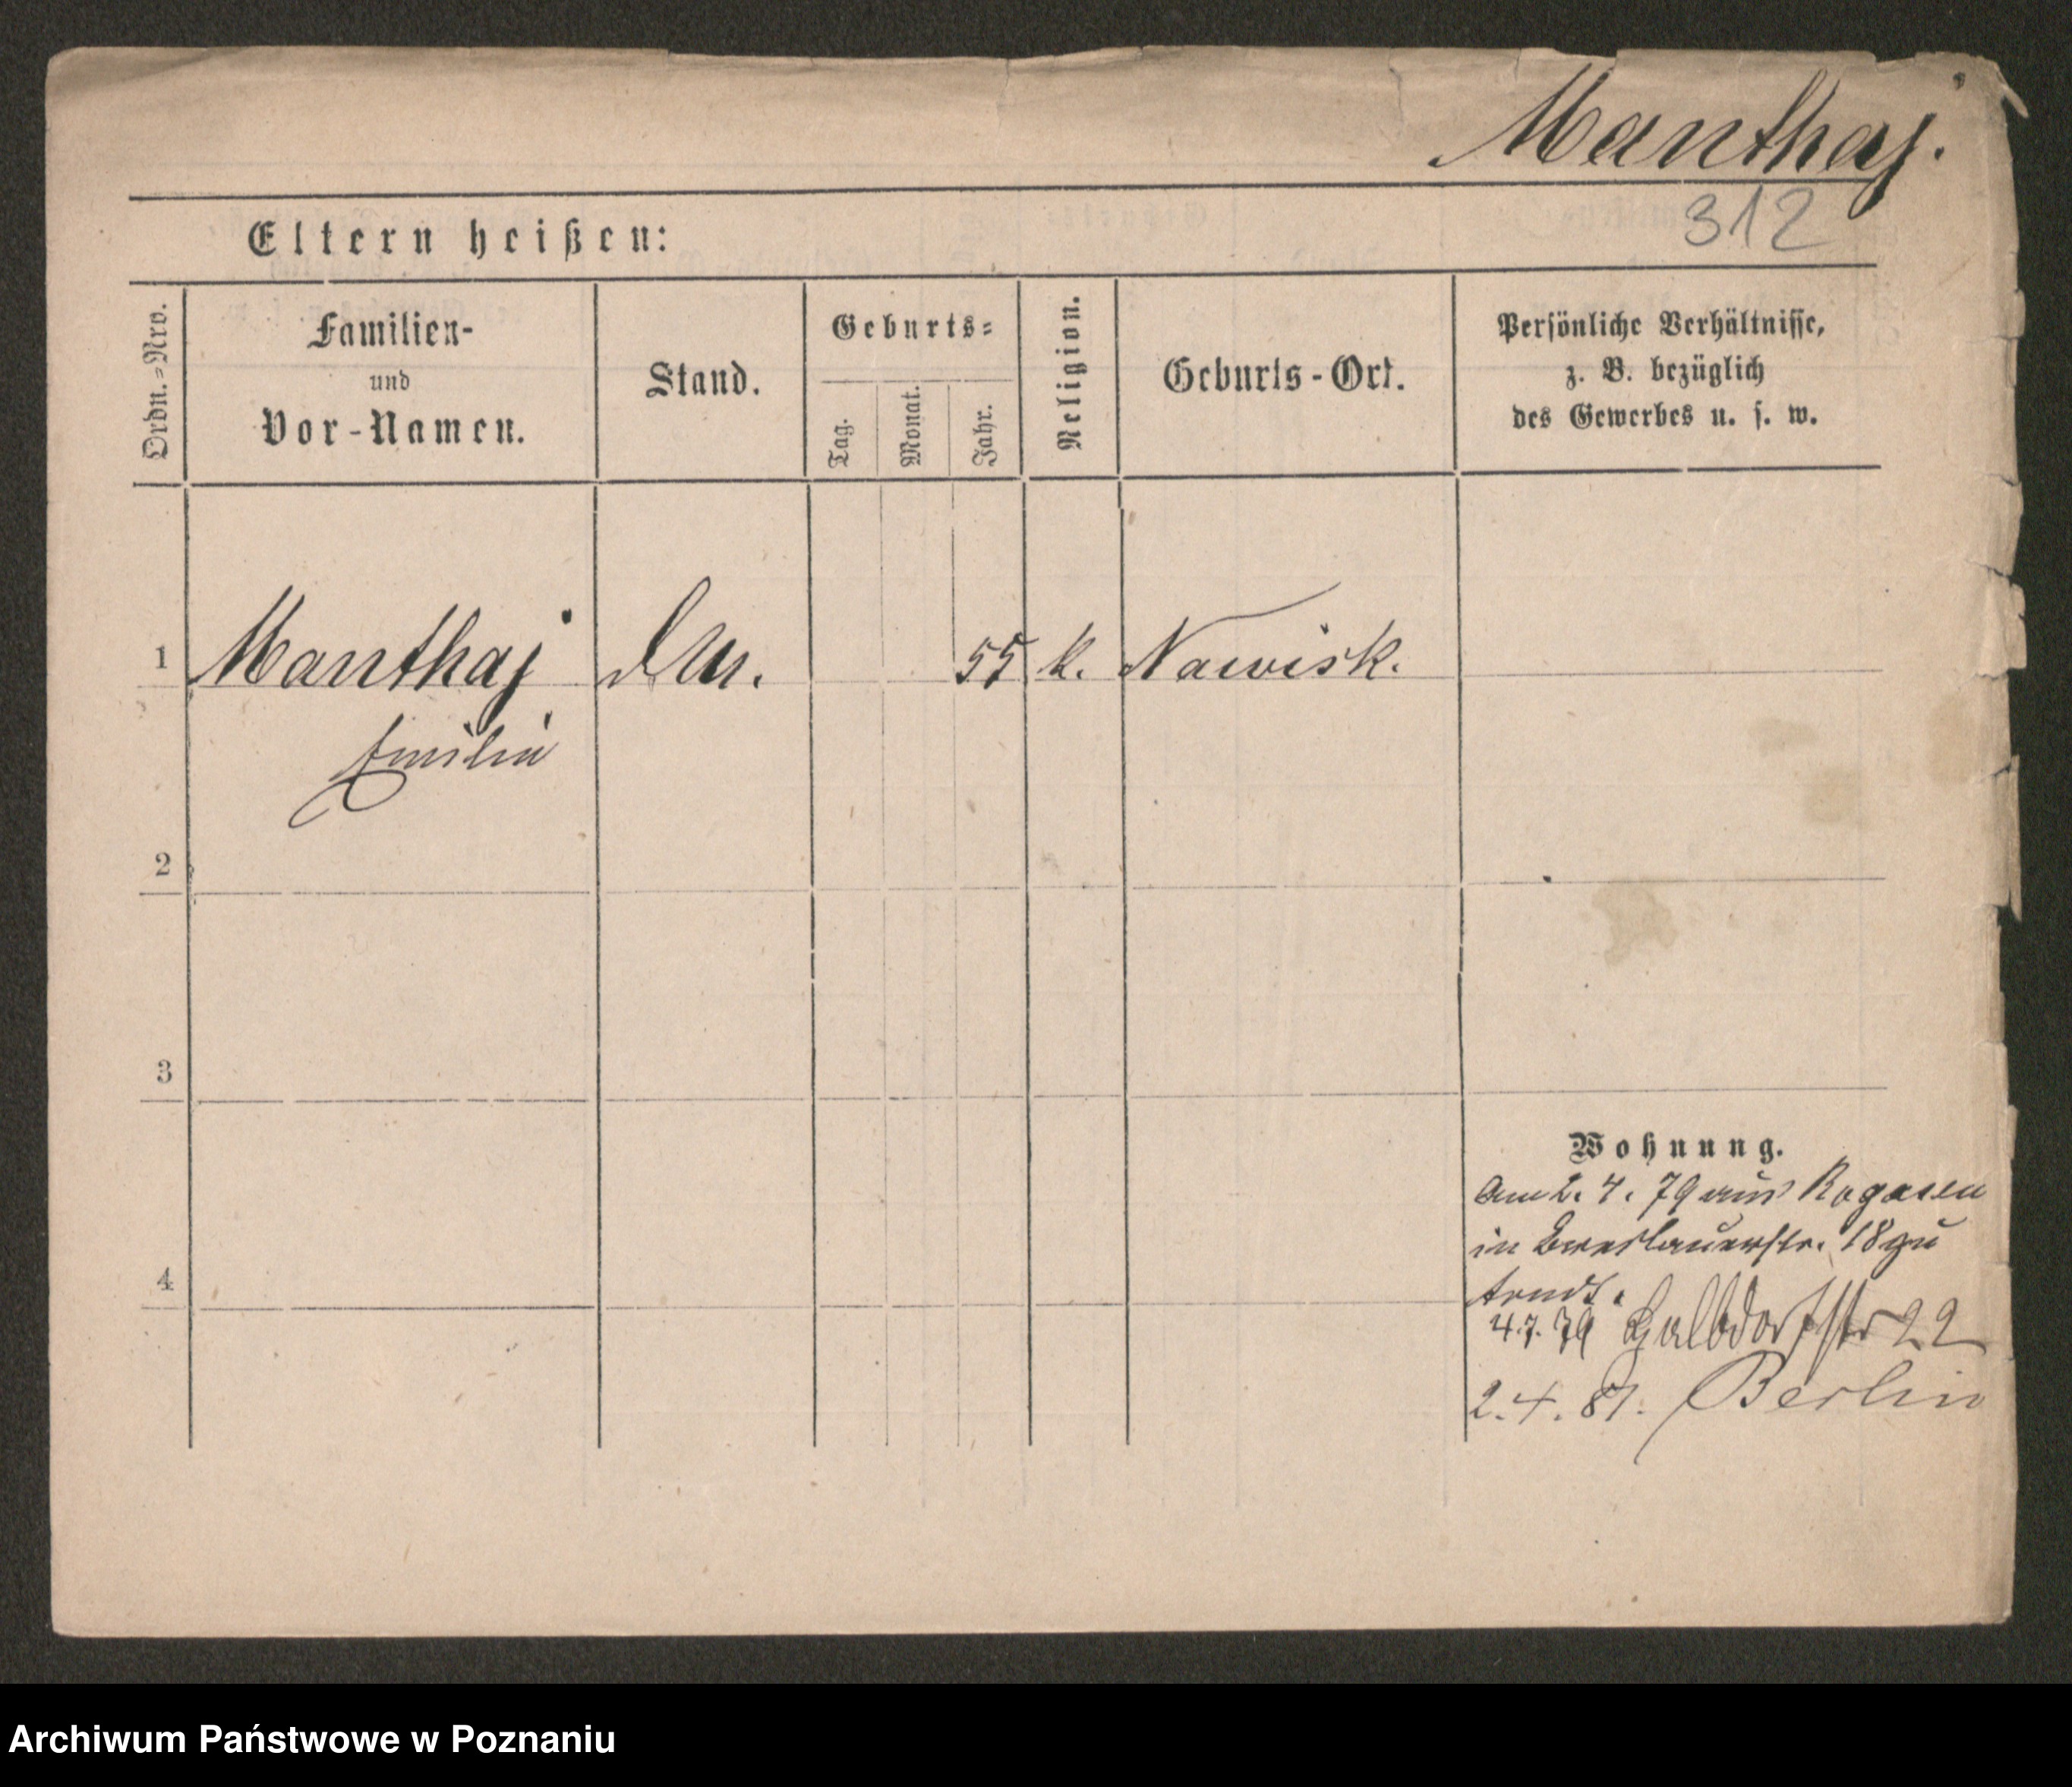 Manthaj.
312
Eltern heißen:
Ordn.=Nro.
Familien-
und
Vor-Namen.
Stand.
Geburts=
Tag.
Monat.
Jahr.
Religion.
Geburts-Ort.
Persönliche Verhältnisse,
z. B. bezüglich
des Gewerbes u. s. w.
1 Manthaj 55 k. Nawisk.
Emilie
2
3
Wohnung.
Am 2. 4. 79 aus Rogasen
in Breslauerstr. 18 zu
4
4.7.79 22
2.4.81. Berlin
Archiwum Państwowe w Poznaniu